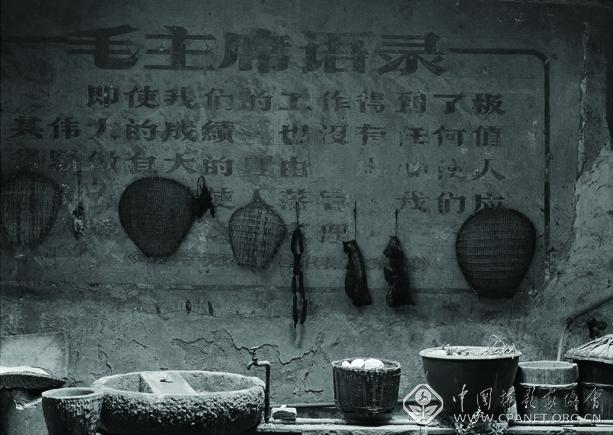 毛主席语录
即使我们的工作得到了极
其伟大的成績 也沒有任何值
得驕傲自大的理由 虚心使人
人落 我们应
理
中国摄影家协会
WWW.CPANET.ORG.CN